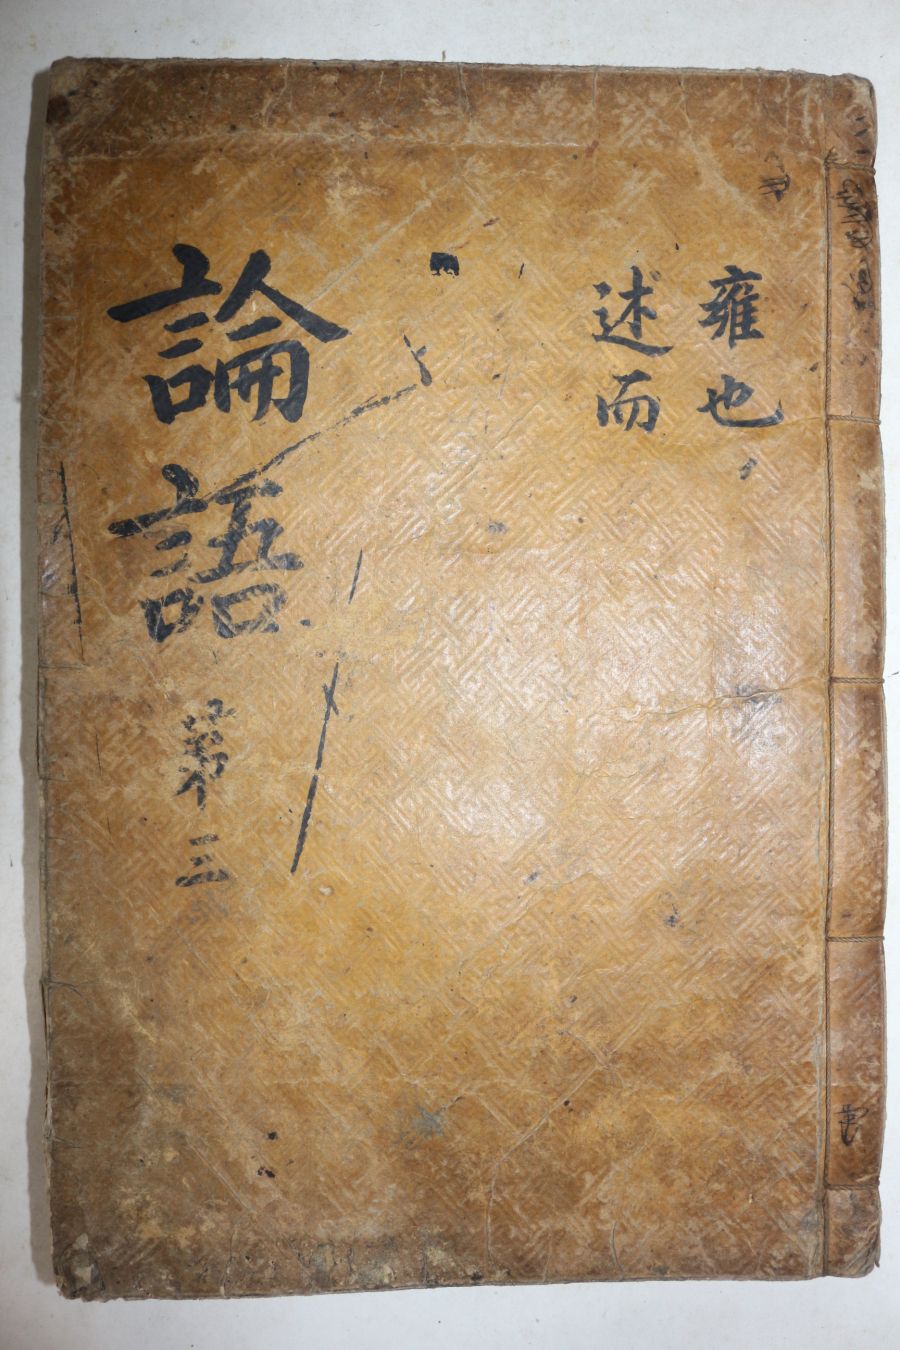 雍也
述而
論語 第三